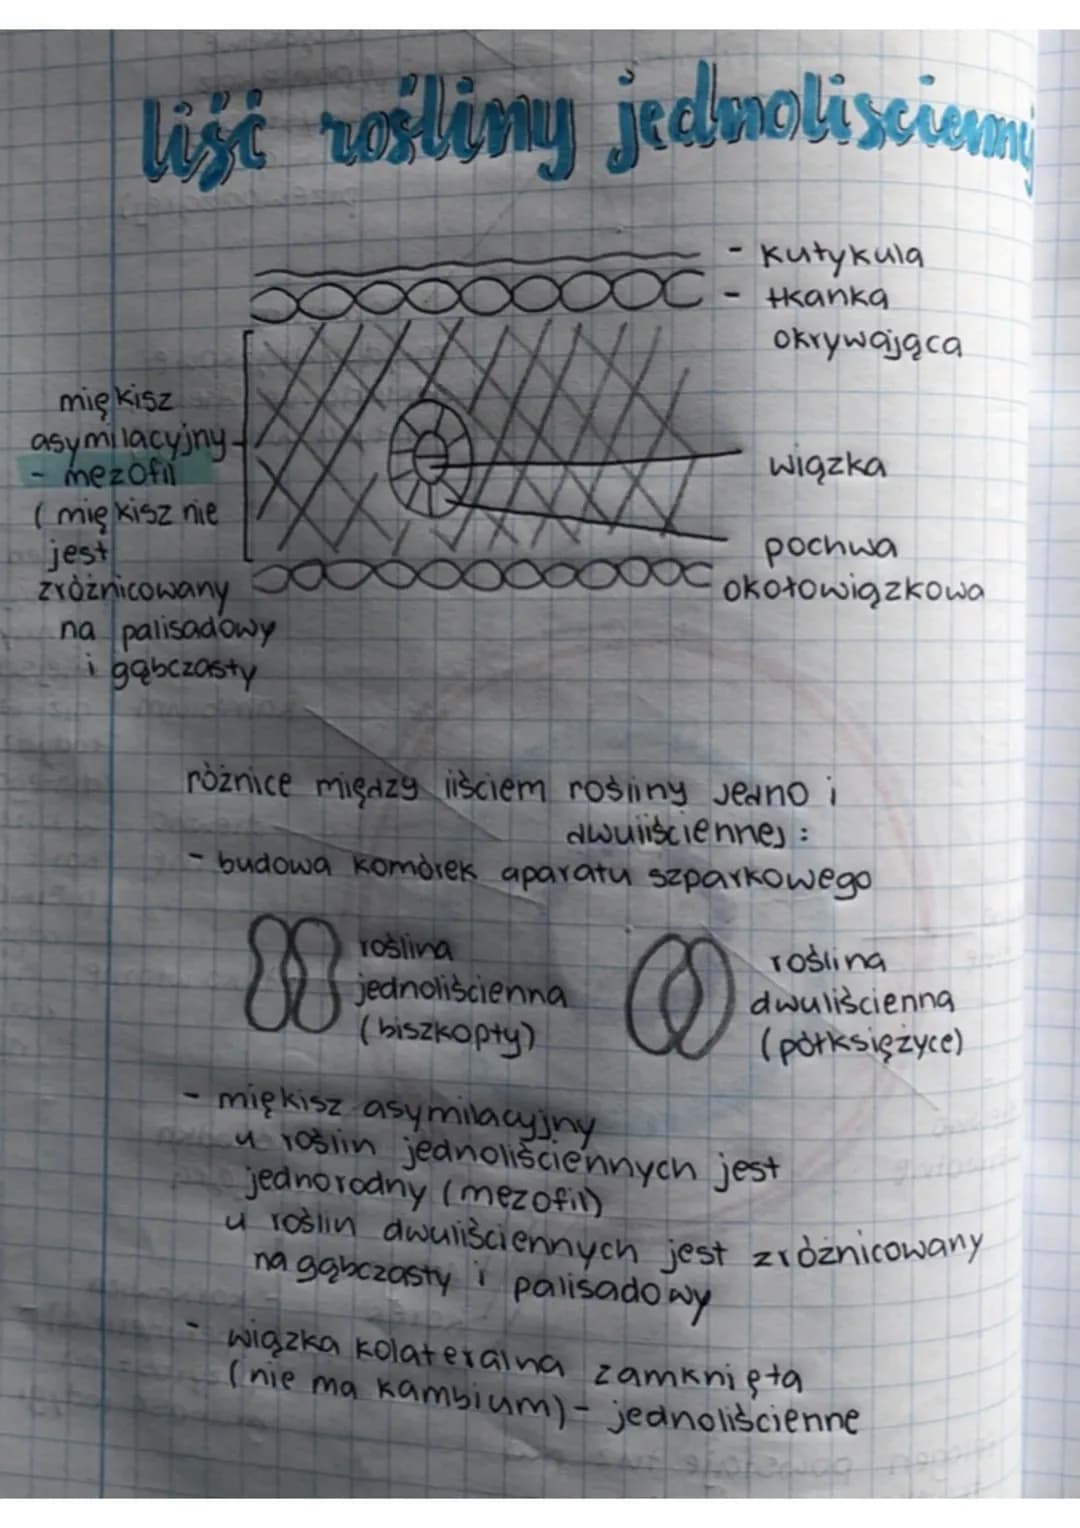 liść rośliny jednoliscienny
- kutykula
- tkanka
okrywająca
miękisz
asymilacyjny
- mezofil
(miękisz nie
jest
zróżnicowany
na palisadowy
i gąbczasty
wiązka
pochwa
okołowiązkowa
różnice między liściem rośliny jedno i
dwuliściennej:
- budowa komórek aparatu szparkowego
roślina
jednoliścienna
(biszkopty)
roślina
dwuliścienna
(półksiężyce)
- miękisz asymilacyjny
u roślin jednoliściennych jest
jednorodny (mezofil)
u roślin dwuliściennych jest zróżnicowany
na gąbczasty i palisadowy
- wiązka kolateralna zamknięta
(nie ma kambium) - jednoliścienne